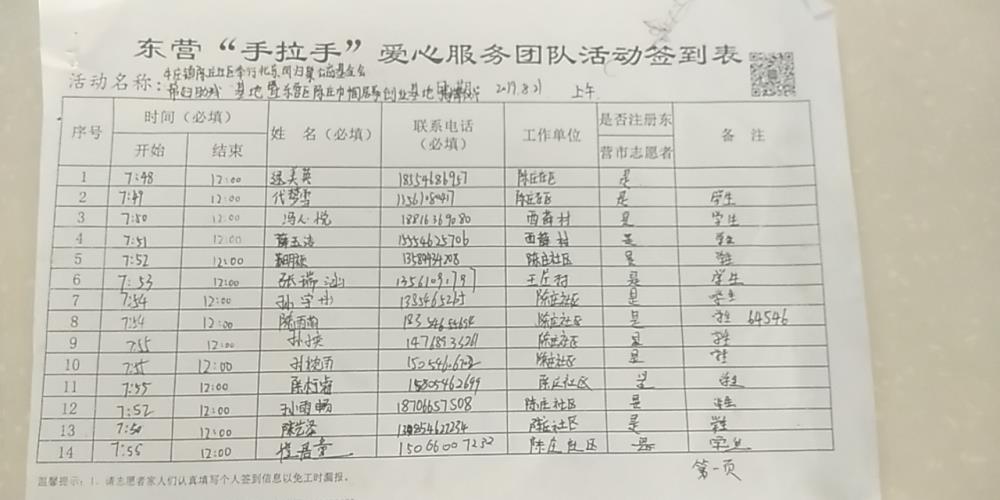 东营“手拉手”爱心服务团队活动签到表
活动名称：
基地暨东营区陈庄巾帼居家创业基地 2017.8.21 上午
序号 时间（必填） 姓 名（必填） 联系电话（必填） 工作单位 是否注册东营市志愿者 备 注
开始 结束
1 7:48 12:00 美英 18554686957 陈庄社区 是
2 7:49 12:00 代梦雪 陈庄社区 是 学生
3 7:50 12:00 冯人悦 18816369080 西薛村 是 学生
4 7:51 12:00 薛玉洁 15554625706 西薛村 是 学生
5 7:52 12:00 13589934208 陈庄社区 是 学生
6 7:53 12:00 张瑞汕 13561091797 王庄村 是 学生
7 7:54 12:00 孙宇 陈庄社区 是 学生
8 7:54 12:00 陈雨萌 陈庄社区 是 学生 64546
9 7:55 12:00 陈庄社区 是 学生
10 7:55 12:00 陈庄社区 是 学生
11 7:55 12:00 15805462699 陈庄社区 是 学生
12 7:52 12:00 孙雨畅 18706657508 陈庄社区 是 学生
13 7:50 12:00 陈庄社区 是 学生
14 7:55 12:00 15066007232 陈庄社区 是 学生
第一页
温馨提示：1、请志愿者家人们认真填写个人签到信息以免工时漏报。